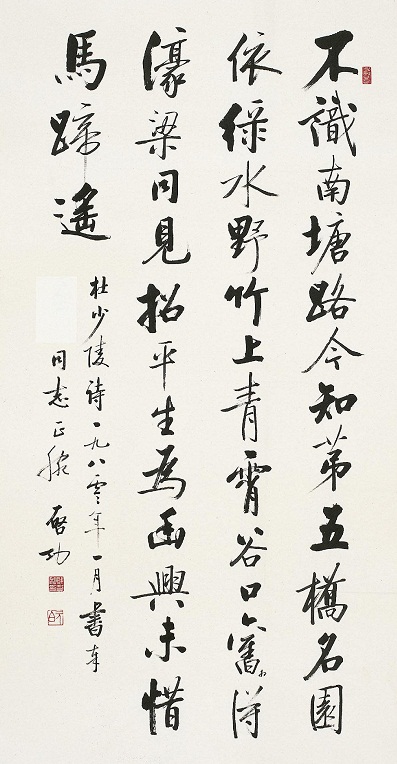 不識南塘路今知第五橋名園
依綠水野竹上青霄谷口舊得
濠梁同見招平生為幽興未惜
馬蹄遙
杜少陵詩一九八零年一月書奉
同志正腕 啓功